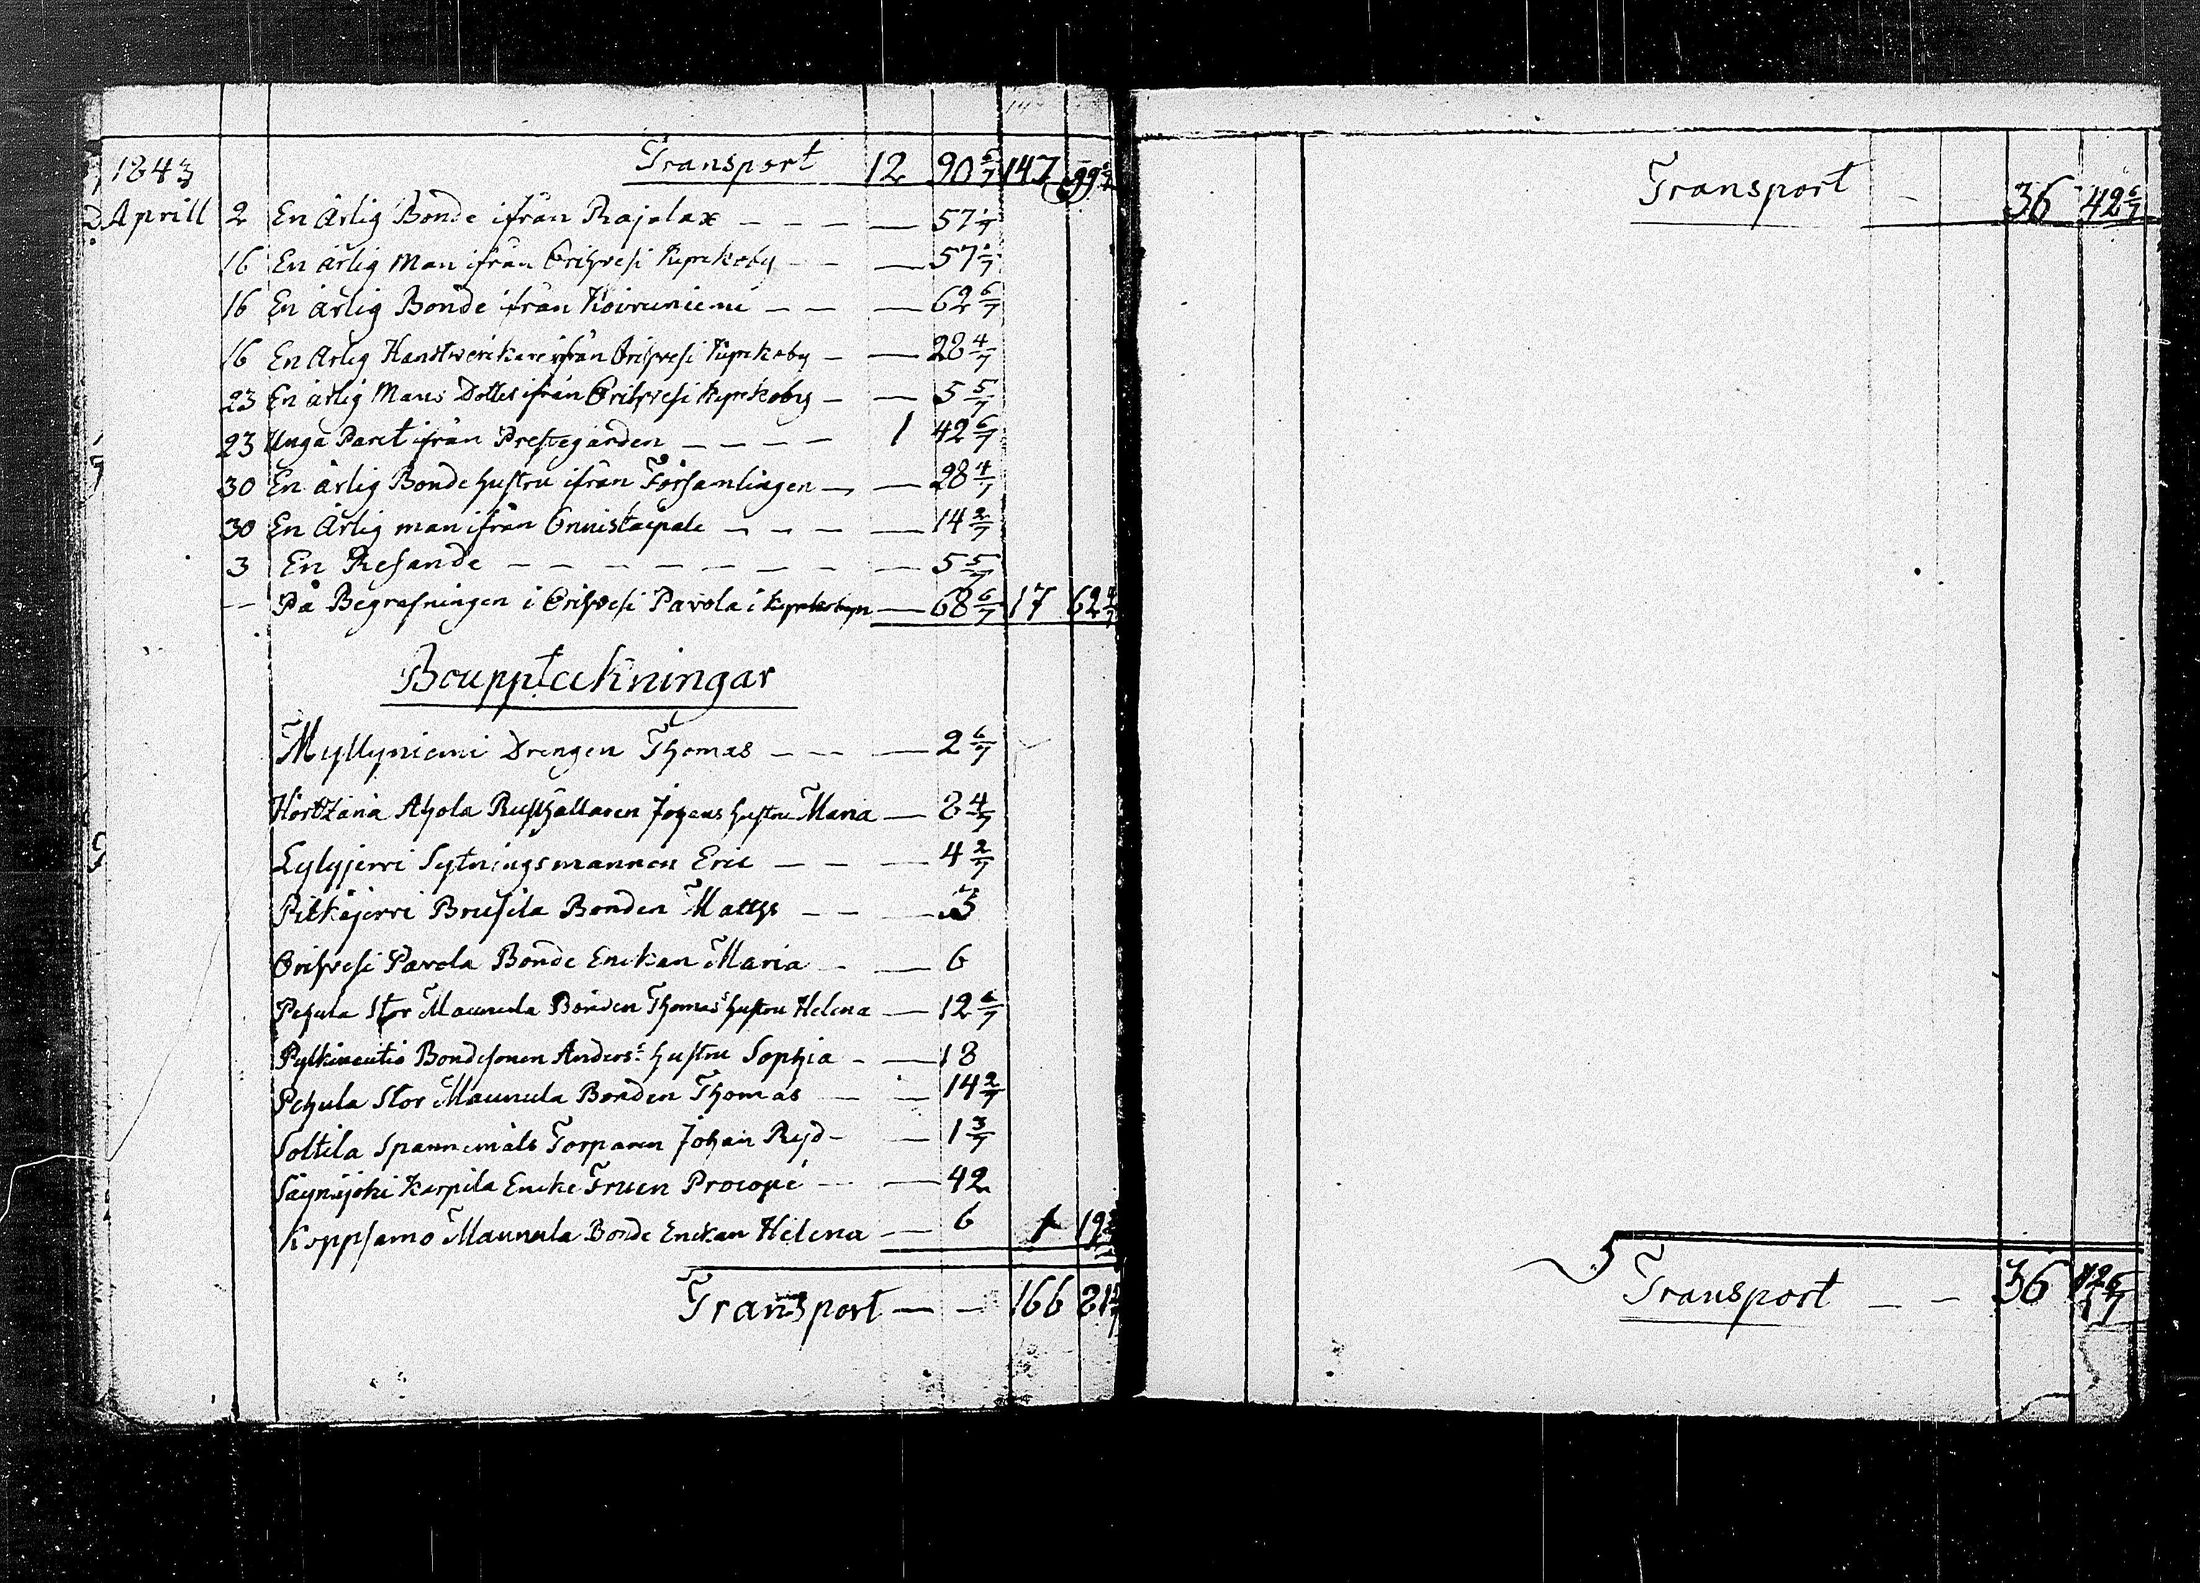 1843 Transport 12 90 6/7 147 99 6/7
Aprill 2 En ärlig Bonde ifrån Rajalax — — — — 57 1/7
16 En ärlig Man ifrån Orihvesi Kyrkoby — — — 57 1/7
16 En ärlig Bonde ifrån Koivuniemi — — — 62 6/7
16 En Ärlig Handtverkare ifrån Orihvesi Kyrkoby — — 28 4/7
23 En ärlig Mans Dotter ifrån Orihvesi Kyrkoby — — 5 5/7
23 Unga Paret ifrån Prestegården — — — — 1 42 6/7
30 En ärlig Bonde hustru ifrån Församlingen — — 28 4/7
30 En Ärlig man ifrån Onnistaipale — — — — 14 2/7
3 En Resande — — — — — — — — 5 5/7
— På Begrafningen i Orihvesi Pavola i Kyrkobyn — 68 6/7 17 62 4/7
Bouppteckningar
Myllyniemi Drengen Thomas — — — 2 6/7
Ahola Rusthållaren Johans hustru Maria — 8 4/7
Lylyjervi Sytningsmannen Eric — — — 4 2/7
Pitkäjervi Brusila Bonden Matths — — — 3
Orihvesi Pavola Bonde Enckan Maria — — 6
Pehula Stor Maunula Bonden Thomas's hustru Helena — 12 6/7
Bondesonen Anders's hustru Sophia — — 18
Pehula Stor Maunula Bonden Thomas — — 14 2/7
Soltila Spannemåls Torparen Johan Ryd — — 1 3/7
Säynäjoki Karpila Encke Fruen Procopé — — 42
Koppsamo Maunula Bonde Enckan Helena — — 6 1 19
Transport — — 166 81
Transport — — 36 42 6/7
Transport — — 36 42 6/7